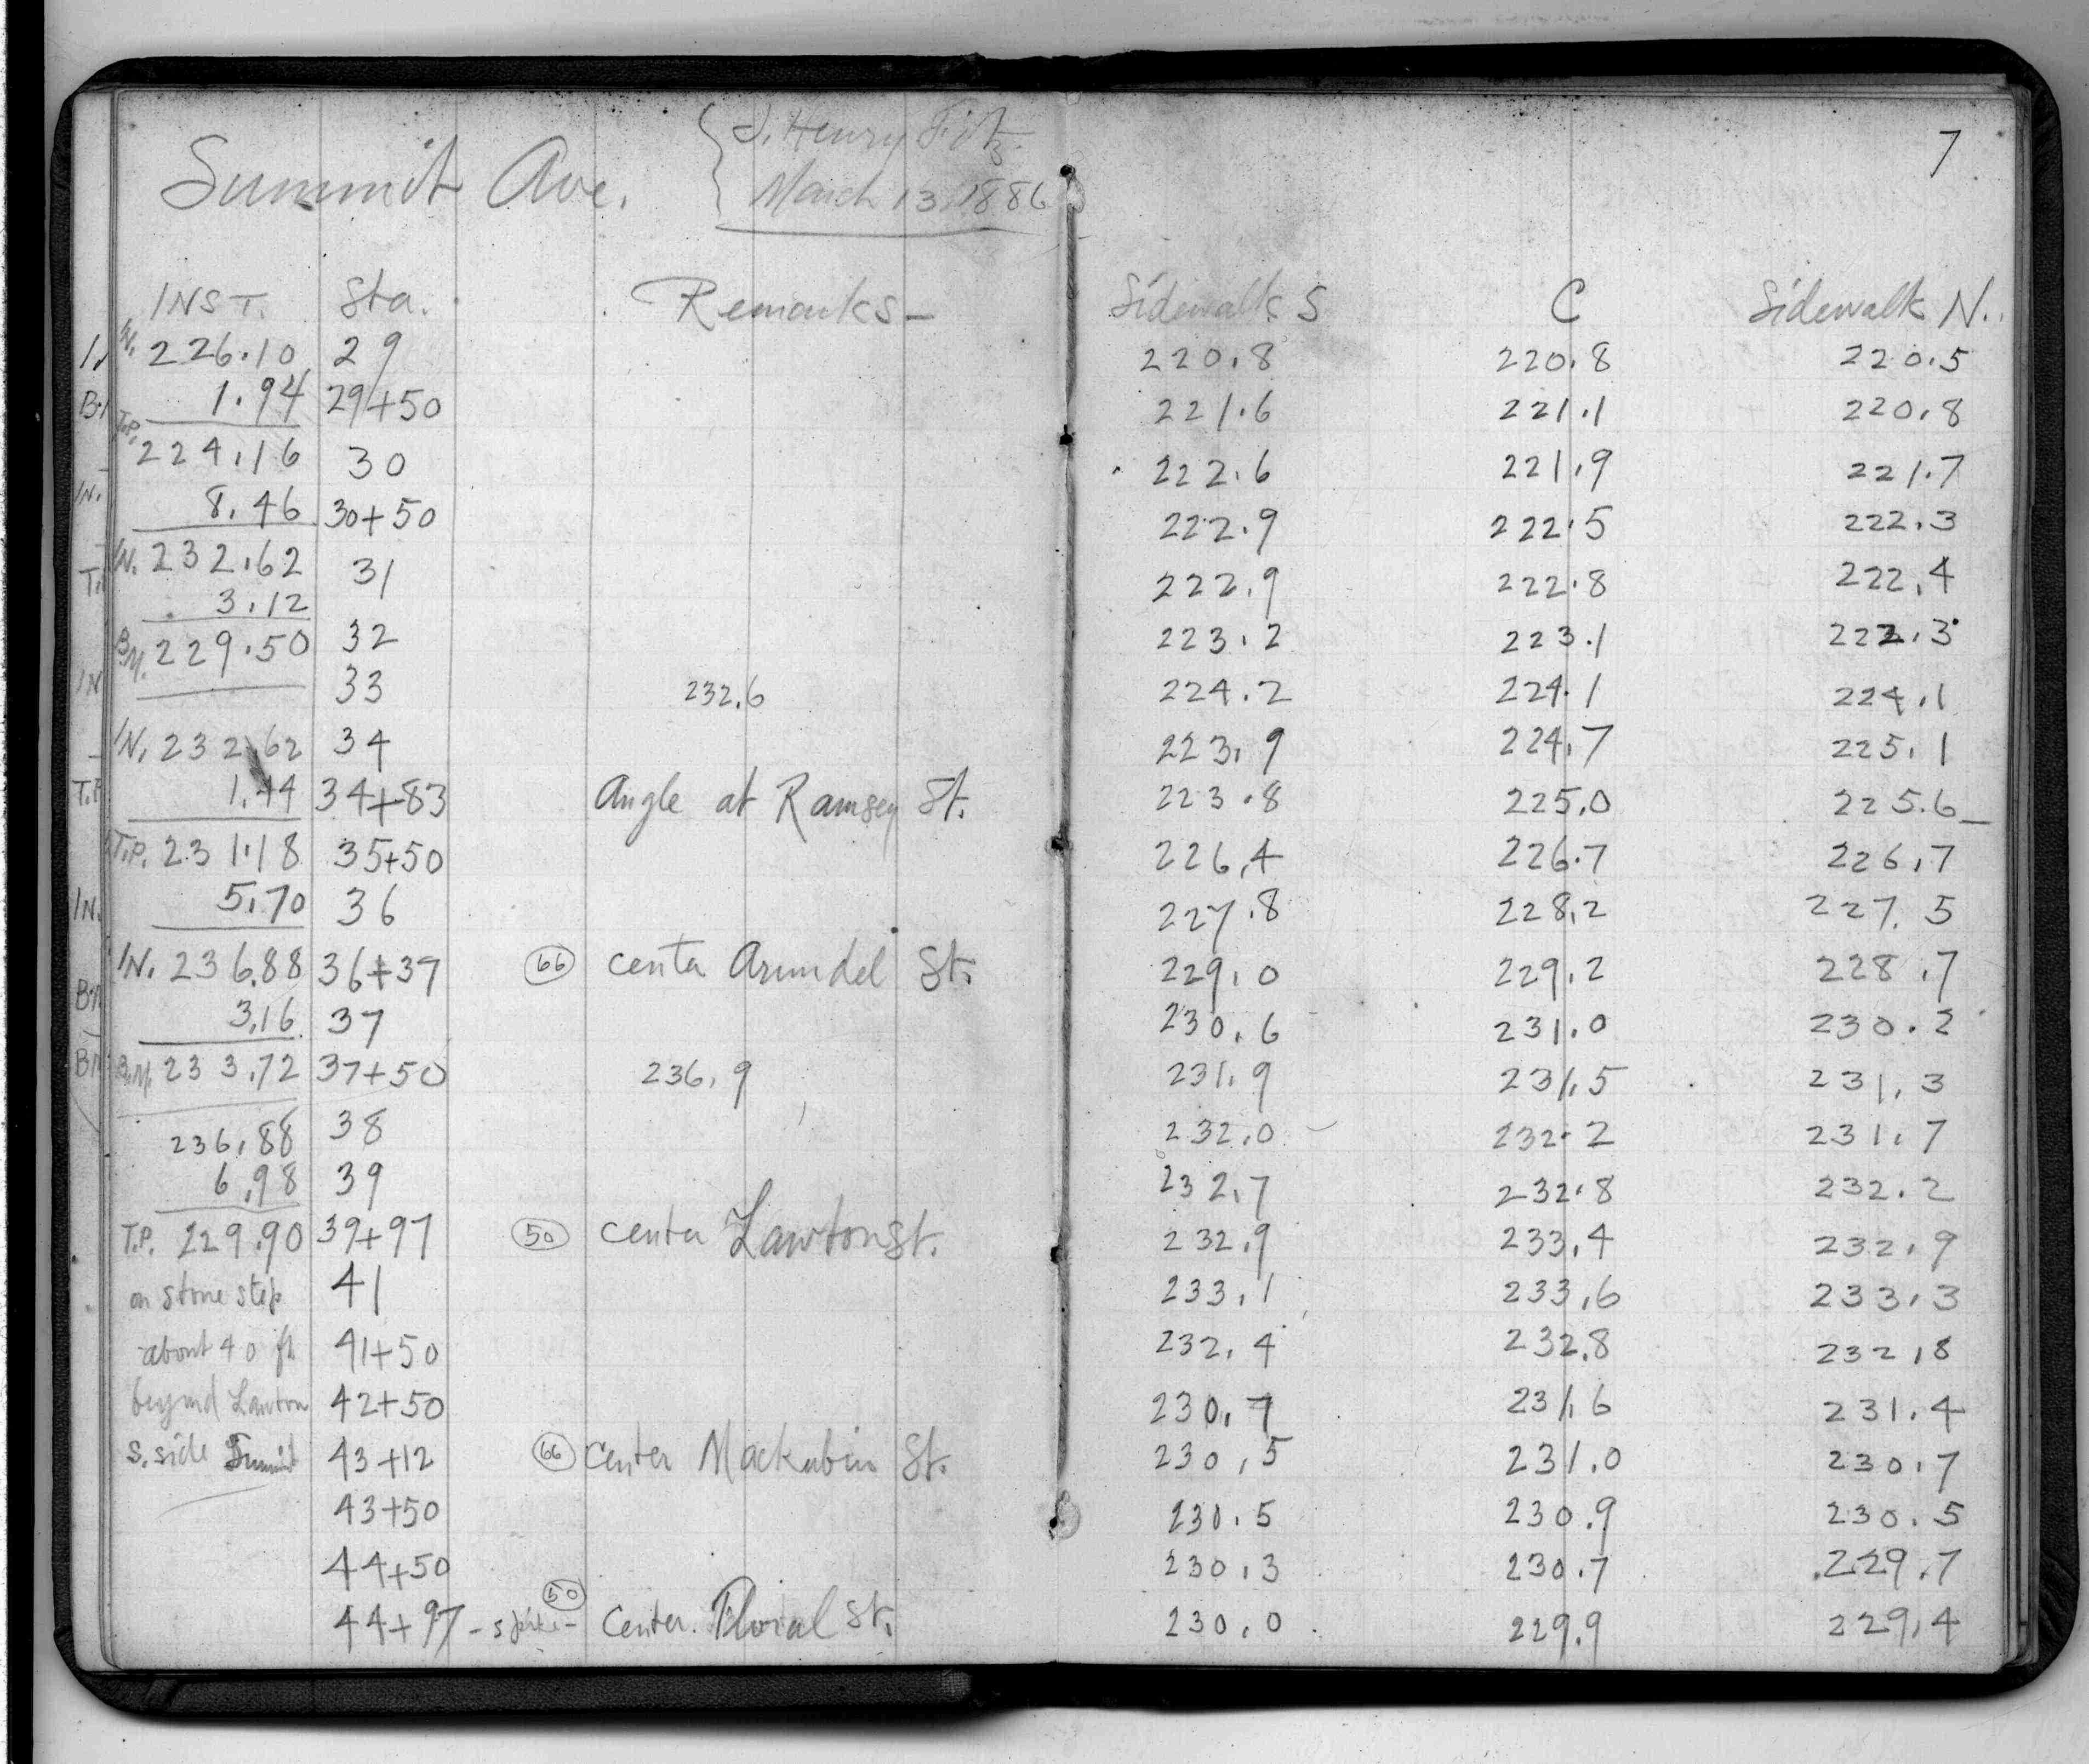 7
Summit Ave.
J. Henry Fitz.
March 13, 1886
INST. Sta. Remarks- Sidewalk S C Sidewalk N.
IN. 226.10 29 220.8 220.8 220.5
1.94 29+50 221.6 221.1 220.8
T.P. 224.16 30 222.6 221.9 221.7
8.46 30+50 222.9 222.5 222.3
IN. 232.62 31 222.9 222.8 222.4
3.12
B.M. 229.50 32 223.2 223.1 222.3
33 232.6 224.2 224.1 224.1
IN. 232.62 34 223.9 224.7 225.1
1.44 34+83 Angle at Ramsey St. 223.8 225.0 225.6
T.P. 231.18 35+50 226.4 226.7 226.7
5.70 36 227.8 228.2 227.5
IN. 236.88 36+37 66 center Arundel St. 229.0 229.2 228.7
3.16 37 230.6 231.0 230.2
B.M. 233.72 37+50 236.9 231.9 231.5 231.3
236.88 38 232.0 232.2 231.7
6.98 39 232.7 232.8 232.2
T.P. 229.90 39+97 50 center Lawton St. 232.9 233.4 232.9
on stone step 41 233.1 233.6 233.3
about 40 ft. 41+50 232.4 232.8 232.8
beyond Lawton 42+50 230.7 231.6 231.4
S. side Summit 43+12 66 Center Mackubin St. 230.5 231.0 230.7
43+50 230.5 230.9 230.5
44+50 230.3 230.7 229.7
44+97 - spike - 50 Center. Floral St. 230.0 229.9 229.4